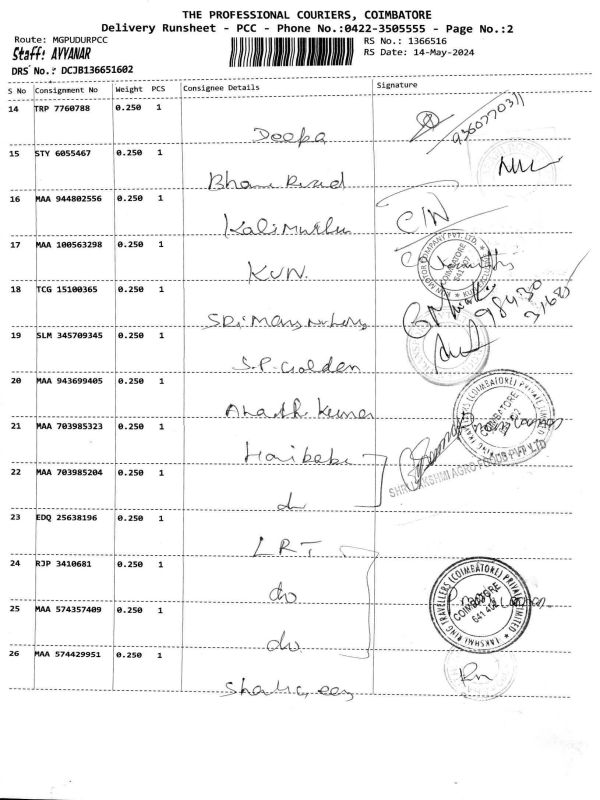 THE PROFESSIONAL COURIERS, COIMBATORE
Delivery Runsheet - PCC - Phone No.:0422-3505555 - Page No.:2
Route: MGPUDURPCC
RS No.: 1366516
Staff: AYYANAR
RS Date: 14-May-2024
DRS No.: DCJB136651602
S No Consignment No Weight PCS Consignee Details Signature
14 TRP 7760788 0.250 1
Deepa
9360770311
15 STY 6055467 0.250 1
16 MAA 944802556 0.250 1
Kalimuthu
C/N
17 MAA 100563298 0.250 1
KUN.
COIMBATORE
18 TCG 15100365 0.250 1
98430
31685
19 SLM 345709345 0.250 1
S.P. Golden
20 MAA 943699405 0.250 1
Ananth Kumar
21 MAA 703985323 0.250 1
Haribabu
COIMBATORE
22 MAA 703985204 0.250 1
SHRI LAKSHMI AGRO FOODS PVT LTD
23 EDQ 25638196 0.250 1
LRT
24 RJP 3410681 0.250 1
do
LAKSHMI RING TRAVELLERS (COIMBATORE) PRIVATE LIMITED
COIMBATORE
641 402
25 MAA 574357409 0.250 1
do
26 MAA 574429951 0.250 1